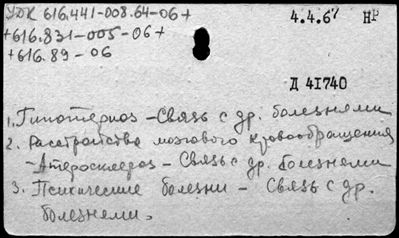 УДК 616.441-008.64-06+
4.4.67 НР
+616.831-005-06+
+616.89-06
Д 41740
1. Гипотериоз - Связь с др. болезнями
2. Расстройства мозгового кровообращения
- Атеросклероз - Связь с др. болезнями
3. Психические болезни - Связь с др.
болезнями.